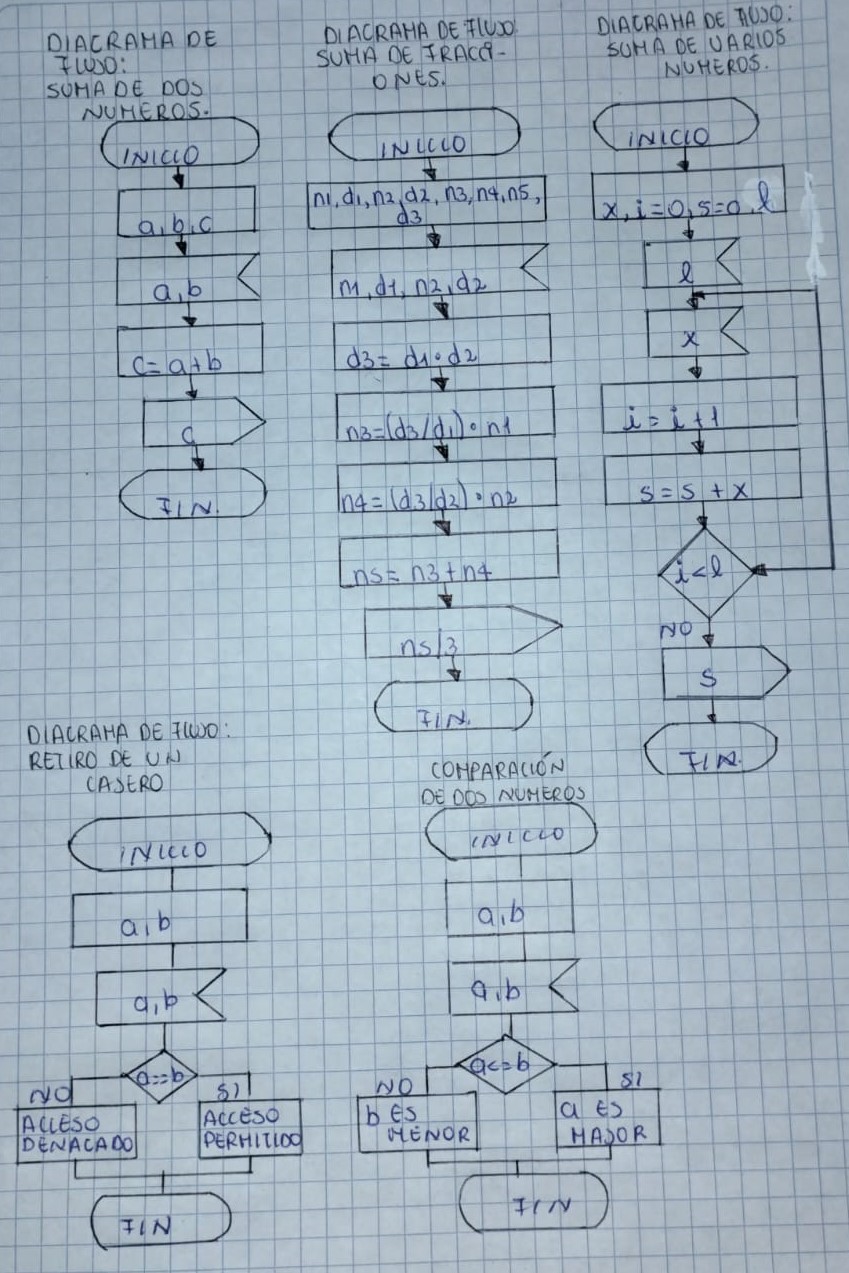 DIAGRAMA DE
FLUJO:
SUMA DE DOS
NUMEROS.
INICIO
a,b,c
a,b
c=a+b
c
FIN.
DIAGRAMA DE FLUJO
SUMA DE FRACCI-
ONES.
INICIO
n1,d1,n2,d2,n3,n4,n5,
d3
n1,d1,n2,d2
d3= d1•d2
n3=(d3/d1)•n1
n4=(d3/d2)•n2
n5= n3+n4
n5/3
FIN.
DIAGRAMA DE FLUJO:
SUMA DE VARIOS
NUMEROS.
INICIO
x, i=0, s=0, l
l
x
i = i + 1
s = s + x
i<l
NO
s
FIN.
DIAGRAMA DE FLUJO:
RETIRO DE UN
CAJERO
INICIO
a,b
a,b
a==b
NO
SI
ACCESO
DENAGADO
ACCESO
PERMITIDO
FIN
COMPARACIÓN
DE DOS NUMEROS
INICIO
a,b
a,b
a<=b
NO
SI
b ES
MENOR
a ES
MAJOR
FIN